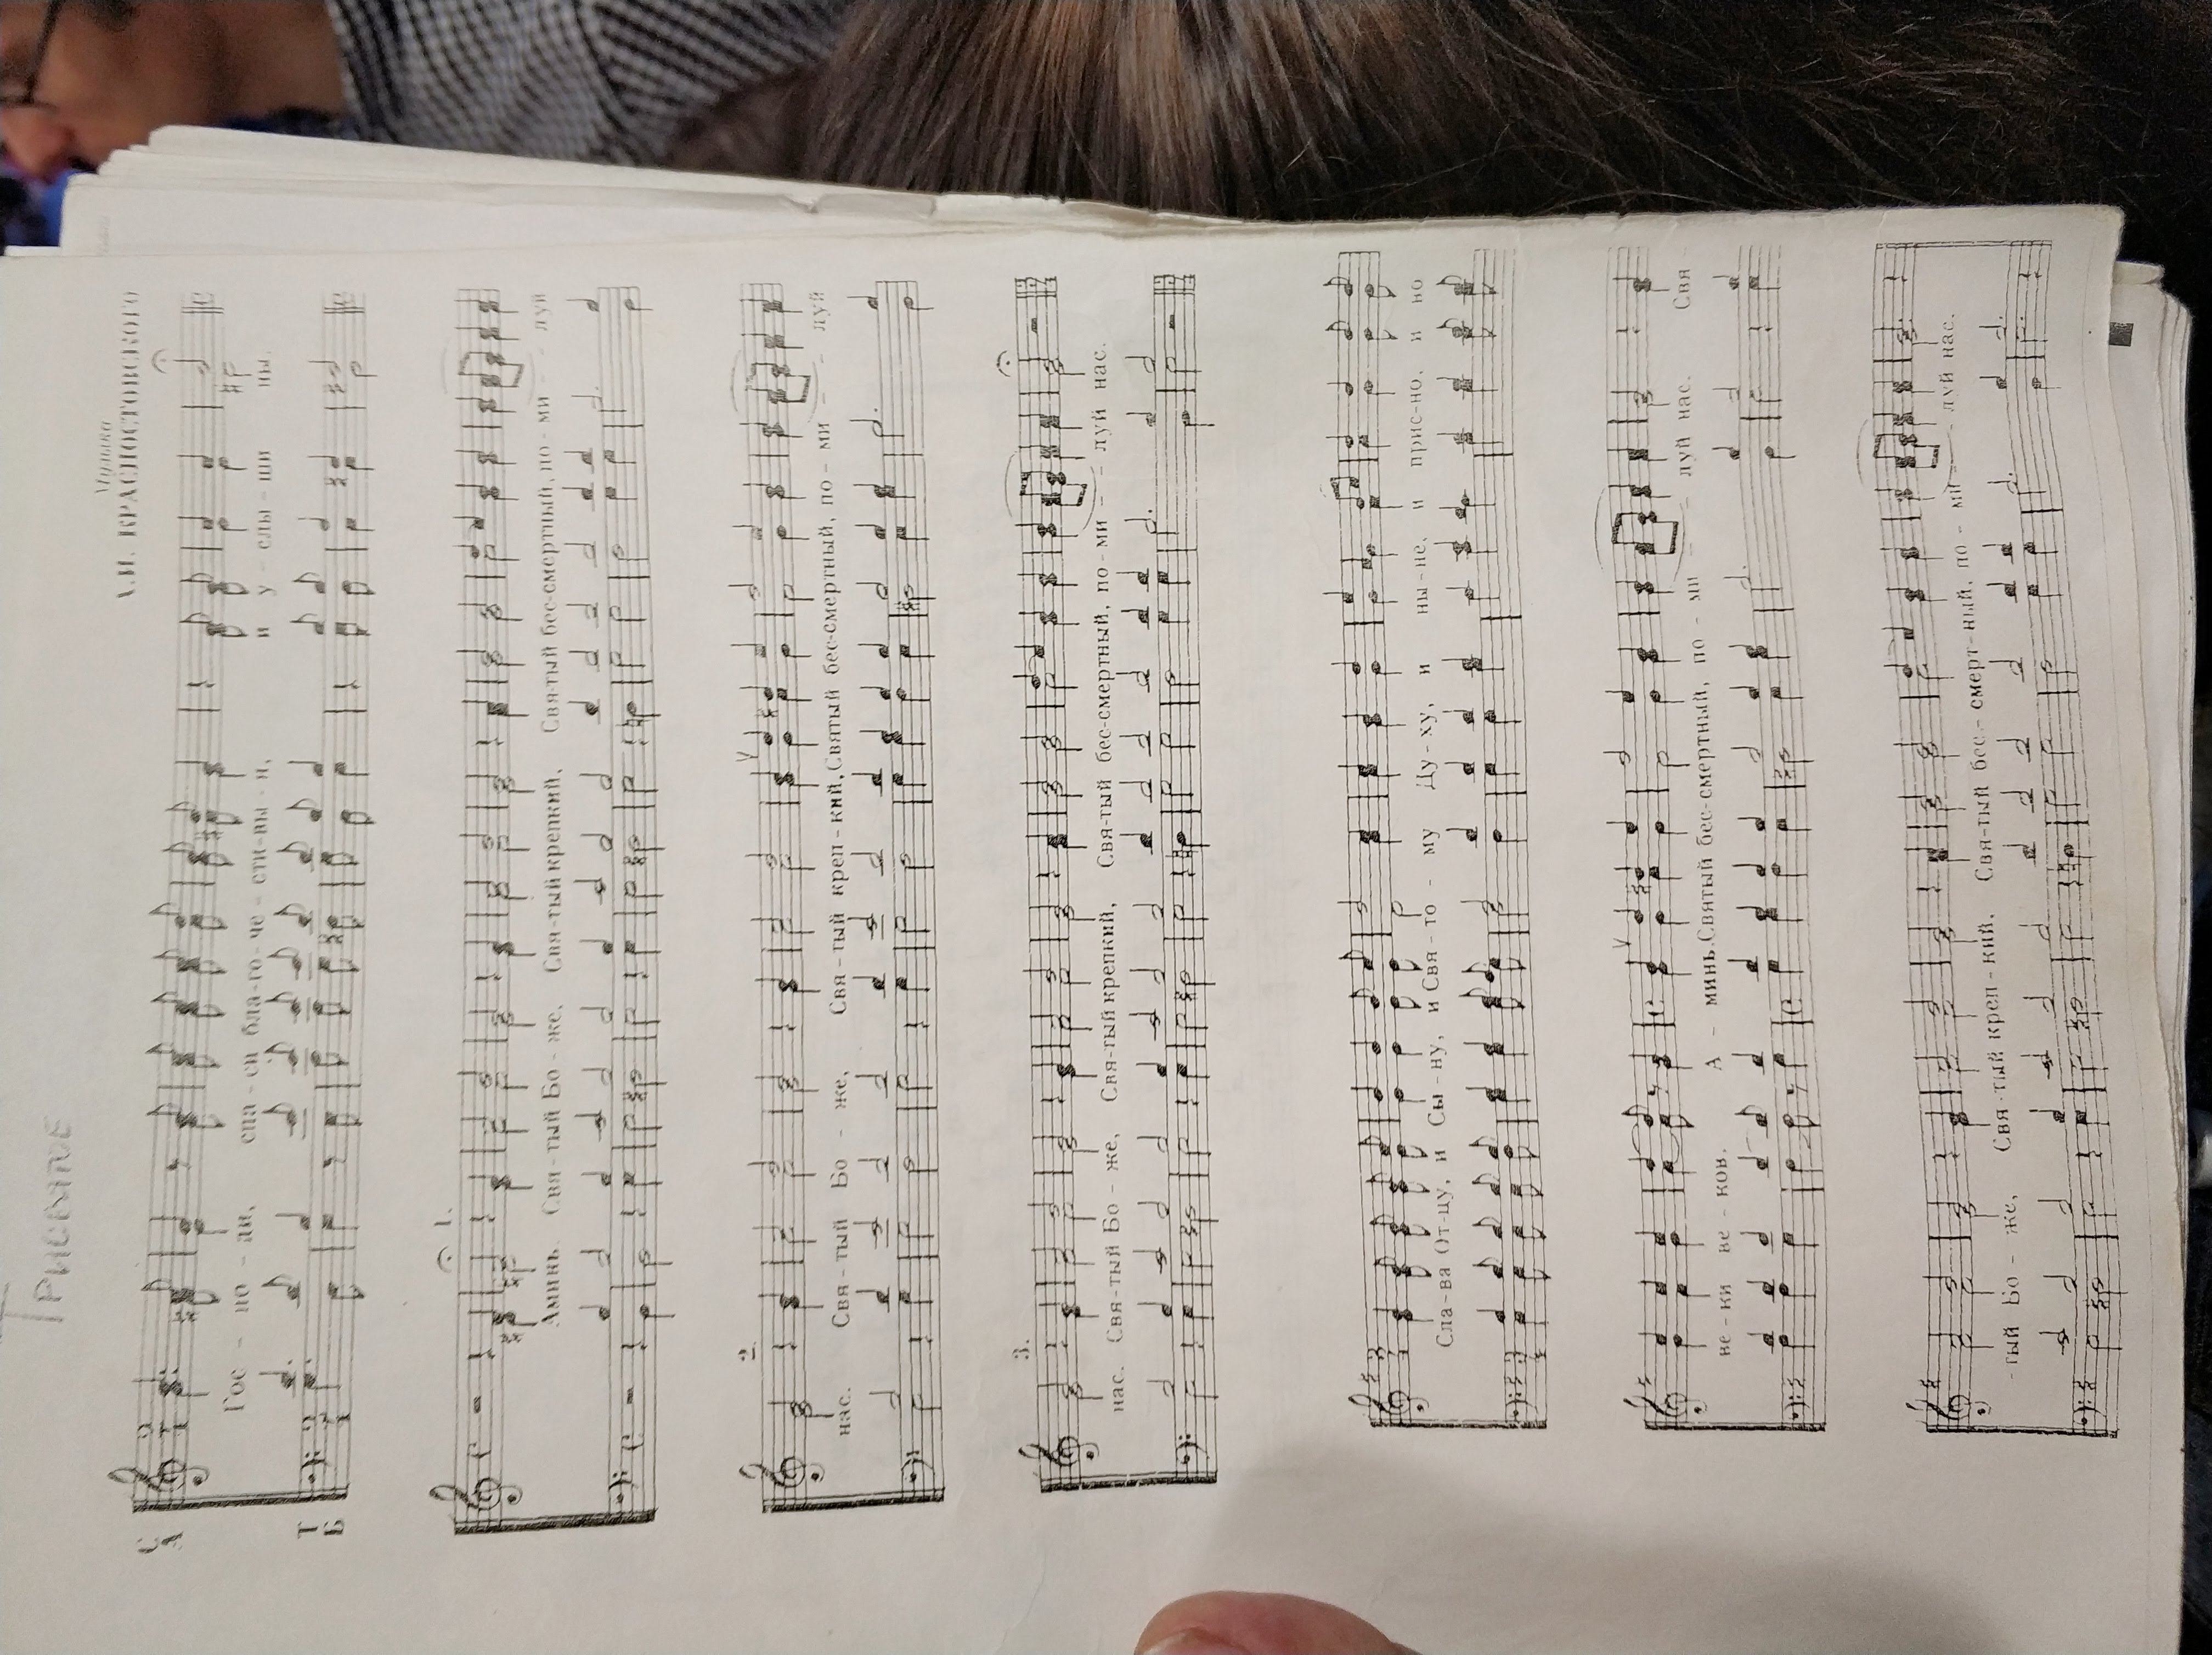 Трисвятое
Музыка
А.И. КРАСНОСТОВСКОГО
С
А
Гос - по - ди, спа - си бла - го - че - сти - вы - я, и у - слы - ши ны.
Т
Б
1.
Аминь. Свя - тый Бо - же, Свя - тый крепкий, Свя-тый бес-смертный, по - ми - луй
2.
нас. Свя - тый Бо - же, Свя - тый креп - кий, Святый бес-смертный, по - ми - луй
3.
нас. Свя - тый Бо - же, Свя-тый крепкий, Свя-тый бес-смертный, по - ми - луй нас.
Сла - ва От-цу, и Сы - ну, и Свя - то - му Ду - ху, и ны - не, и прис-но, и во
ве - ки ве - ков. А - минь. Святый бес-смертный, по - ми - луй нас. Свя -
- тый Бо - же, Свя - тый креп - кий, Свя-тый бес - смерт - ный, по - ми - луй нас.